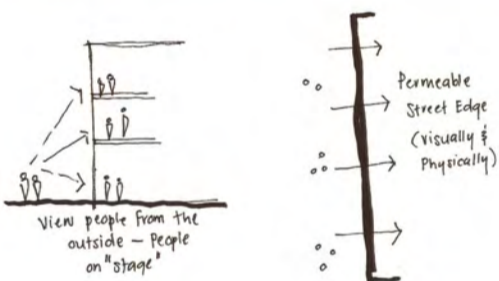 View people from the
outside – People
on "stage"
Permeable
Street Edge
(visually &
Physically)